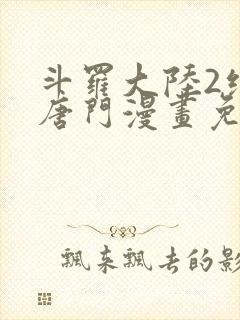 斗羅大陸2
唐門漫畫免
飄來飄去的影